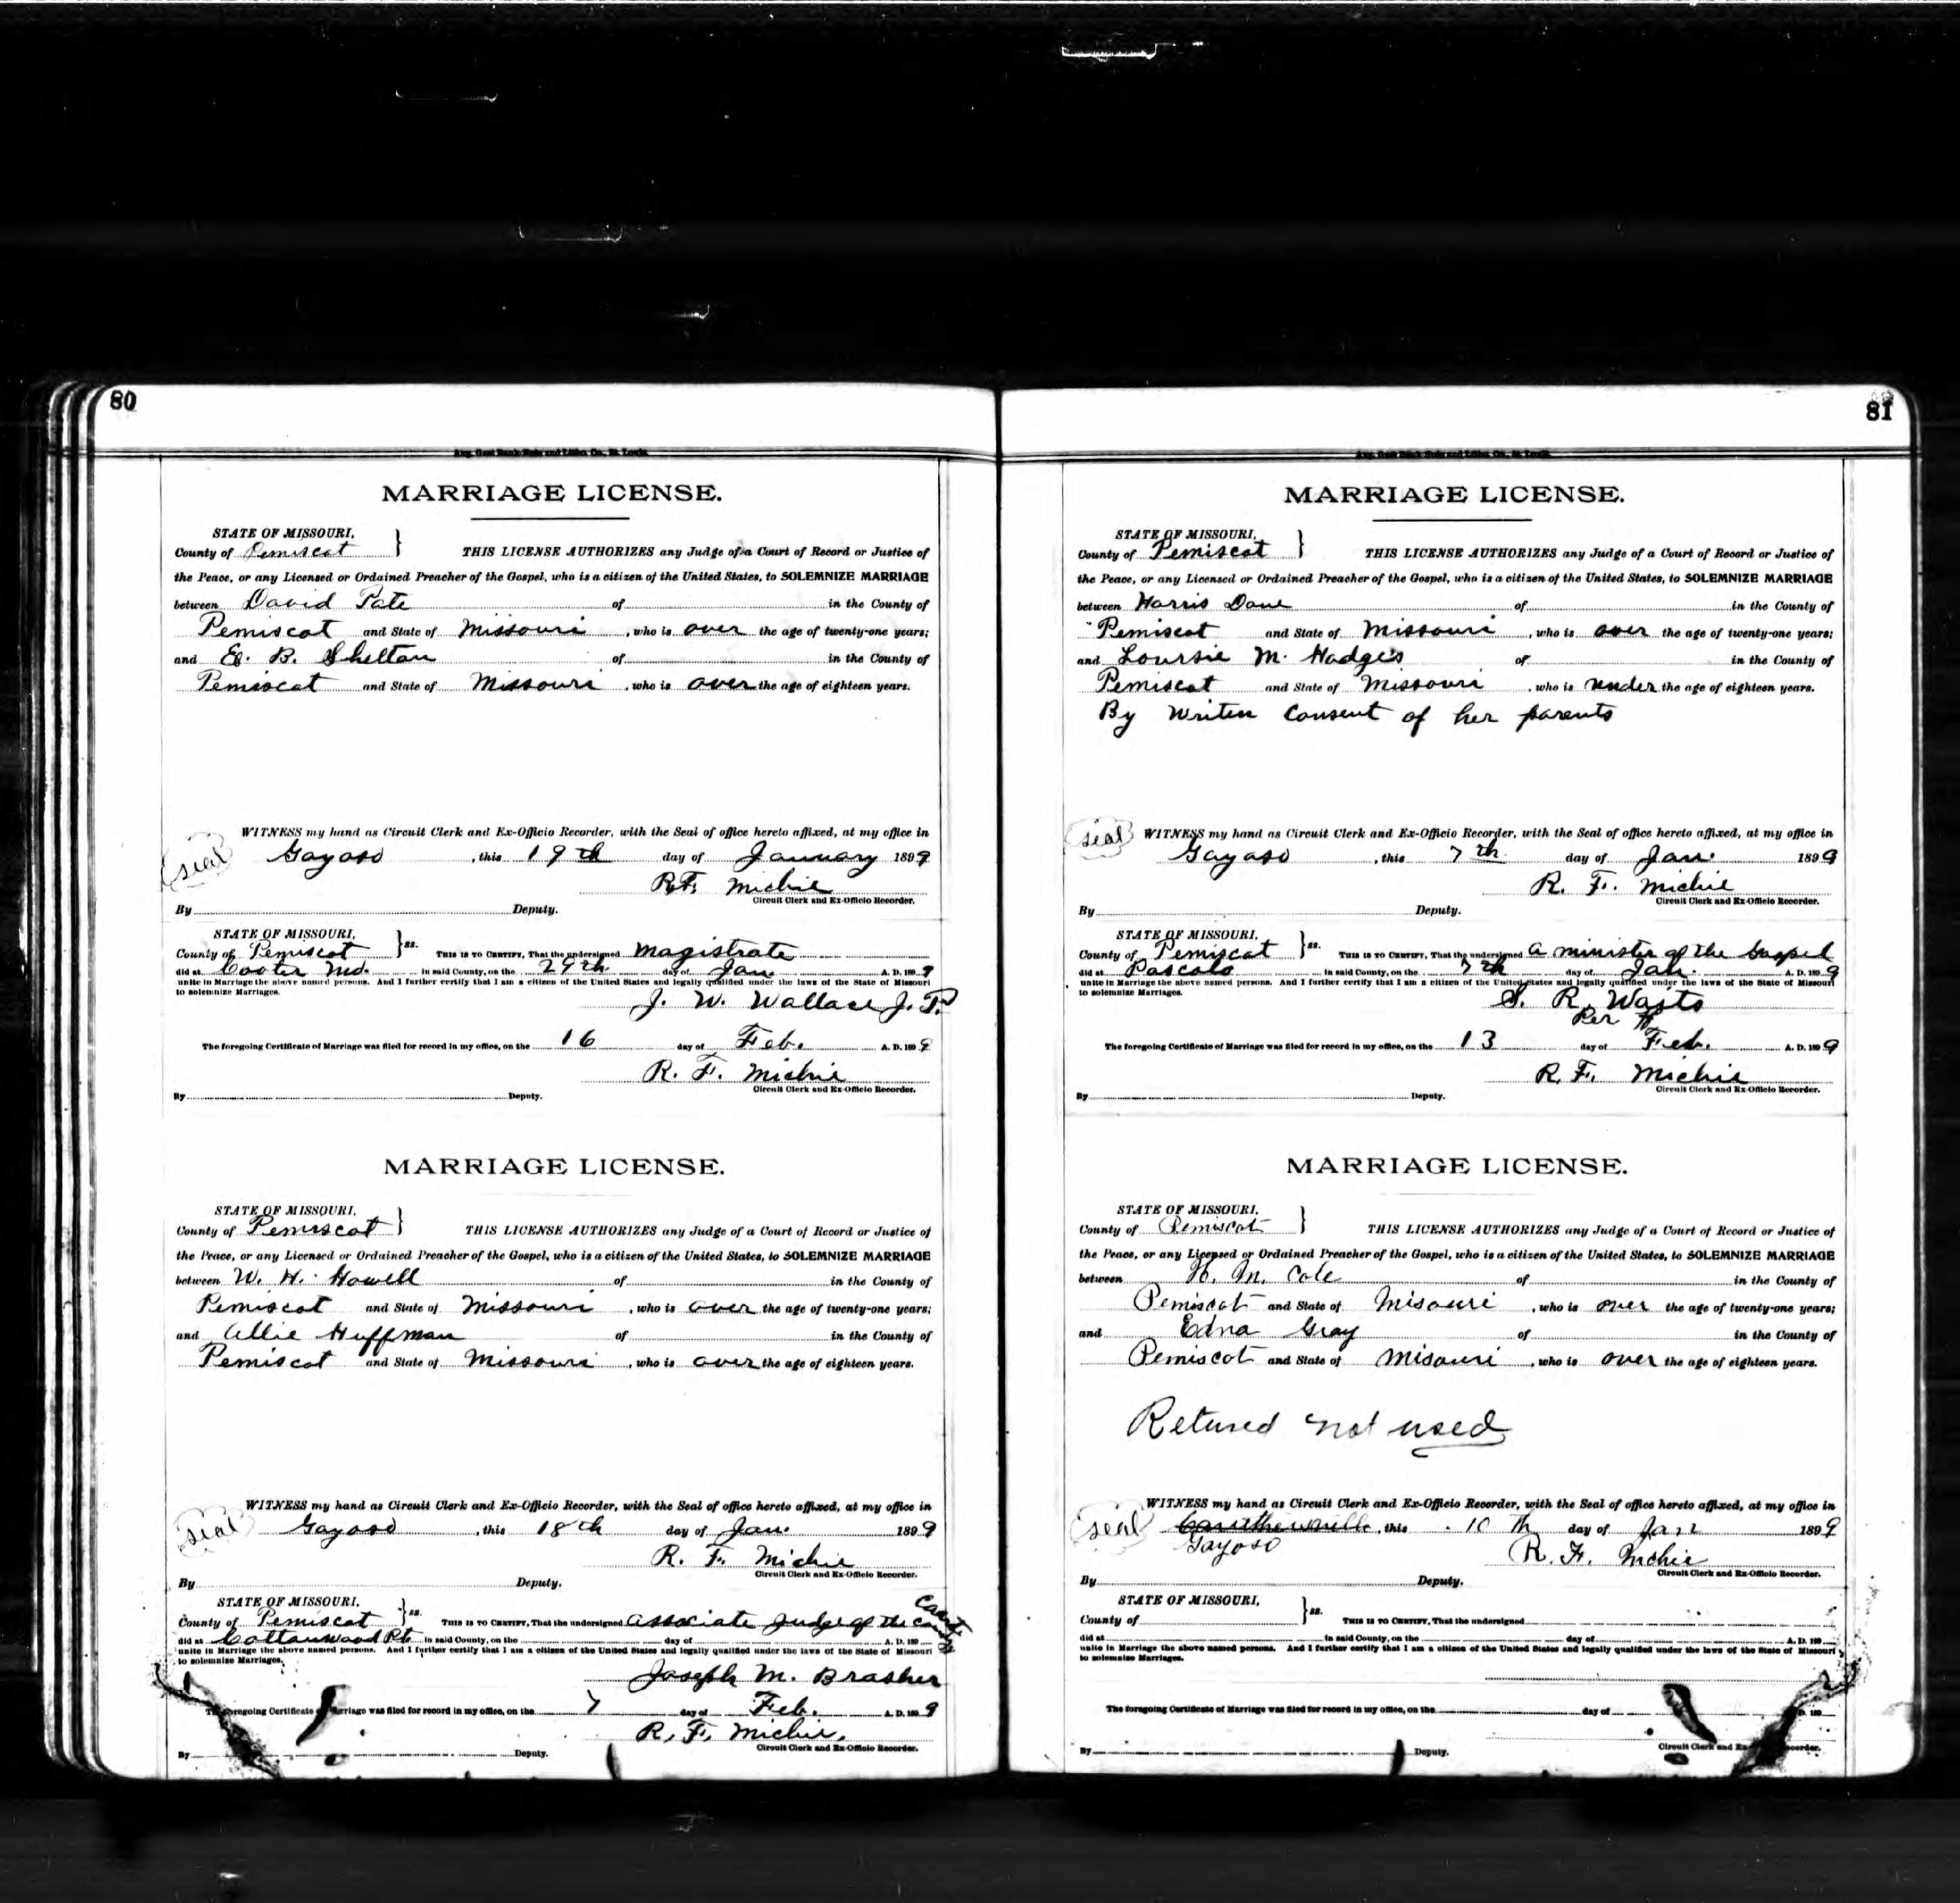 80
Aug. Gast Bank Note and Litho. Co., St. Louis.
MARRIAGE LICENSE.
STATE OF MISSOURI,
County of Pemiscot } THIS LICENSE AUTHORIZES any Judge of a Court of Record or Justice of
the Peace, or any Licensed or Ordained Preacher of the Gospel, who is a citizen of the United States, to SOLEMNIZE MARRIAGE
between David Pate of in the County of
Pemiscot and State of Missouri , who is over the age of twenty-one years;
and E. B. Shelton of in the County of
Pemiscot and State of Missouri , who is over the age of eighteen years.
WITNESS my hand as Circuit Clerk and Ex-Officio Recorder, with the Seal of office hereto affixed, at my office in
(seal) Gayoso , this 19th day of January 1899
R.F. Michie
Circuit Clerk and Ex-Officio Recorder.
By Deputy.
STATE OF MISSOURI,
County of Pemiscot } ss. THIS IS TO CERTIFY, That the undersigned Magistrate
did at Cooter Mo. in said County, on the 29th day of Jan. A. D. 1899
unite in Marriage the above named persons. And I further certify that I am a citizen of the United States and legally qualified under the laws of the State of Missouri
to solemnize Marriages.
J. W. Wallace J. P.
The foregoing Certificate of Marriage was filed for record in my office, on the 16 day of Feb. A. D. 1899
R. F. Michie
Circuit Clerk and Ex-Officio Recorder.
By Deputy.
MARRIAGE LICENSE.
STATE OF MISSOURI,
County of Pemiscot } THIS LICENSE AUTHORIZES any Judge of a Court of Record or Justice of
the Peace, or any Licensed or Ordained Preacher of the Gospel, who is a citizen of the United States, to SOLEMNIZE MARRIAGE
between W. H. Howell of in the County of
Pemiscot and State of Missouri , who is over the age of twenty-one years;
and Allie Huffman of in the County of
Pemiscot and State of Missouri , who is over the age of eighteen years.
WITNESS my hand as Circuit Clerk and Ex-Officio Recorder, with the Seal of office hereto affixed, at my office in
(seal) Gayoso , this 18th day of Jan. 1899
R. F. Michie
Circuit Clerk and Ex-Officio Recorder.
By Deputy.
STATE OF MISSOURI,
County of Pemiscot } ss. THIS IS TO CERTIFY, That the undersigned Associate Judge of the County
did at Cottonwood Pt. in said County, on the day of A. D. 189
unite in Marriage the above named persons. And I further certify that I am a citizen of the United States and legally qualified under the laws of the State of Missouri
to solemnize Marriages.
Joseph M. Brasher
The foregoing Certificate Marriage was filed for record in my office, on the 7 day of Feb. A. D. 1899
R. F. Michie.
Circuit Clerk and Ex-Officio Recorder.
By Deputy.
81
Aug. Gast Bank Note and Litho. Co., St. Louis.
MARRIAGE LICENSE.
STATE OF MISSOURI,
County of Pemiscot } THIS LICENSE AUTHORIZES any Judge of a Court of Record or Justice of
the Peace, or any Licensed or Ordained Preacher of the Gospel, who is a citizen of the United States, to SOLEMNIZE MARRIAGE
between Harris Dane of in the County of
Pemiscot and State of Missouri , who is over the age of twenty-one years;
and Loursie M. Hadges of in the County of
Pemiscot and State of Missouri , who is under the age of eighteen years.
By Writen Consent of her parents
WITNESS my hand as Circuit Clerk and Ex-Officio Recorder, with the Seal of office hereto affixed, at my office in
(seal) Gayoso , this 7th day of Jan. 1899
R. F. Michie
Circuit Clerk and Ex-Officio Recorder.
By Deputy.
STATE OF MISSOURI,
County of Pemiscot } ss. THIS IS TO CERTIFY, That the undersigned a minister of the Gospel
did at Pascola in said County, on the 7th day of Jan. A. D. 1899
unite in Marriage the above named persons. And I further certify that I am a citizen of the United States and legally qualified under the laws of the State of Missouri
to solemnize Marriages.
S. R. Wasts
Per
The foregoing Certificate of Marriage was filed for record in my office, on the 13 day of Feb. A. D. 1899
R. F. Michie
Circuit Clerk and Ex-Officio Recorder.
By Deputy.
MARRIAGE LICENSE.
STATE OF MISSOURI,
County of Pemiscot } THIS LICENSE AUTHORIZES any Judge of a Court of Record or Justice of
the Peace, or any Licensed or Ordained Preacher of the Gospel, who is a citizen of the United States, to SOLEMNIZE MARRIAGE
between H. M. Cole of in the County of
Pemiscot and State of Misouri , who is over the age of twenty-one years;
and Edna Gray of in the County of
Pemiscot and State of Misouri , who is over the age of eighteen years.
Retured not used
WITNESS my hand as Circuit Clerk and Ex-Officio Recorder, with the Seal of office hereto affixed, at my office in
(seal) Caruthersville , this 10 th day of Jan 1899
Gayoso
R. F. Michie
Circuit Clerk and Ex-Officio Recorder.
By Deputy.
STATE OF MISSOURI,
County of } ss. THIS IS TO CERTIFY, That the undersigned
did at in said County, on the day of A. D. 189
unite in Marriage the above named persons. And I further certify that I am a citizen of the United States and legally qualified under the laws of the State of Missouri
to solemnize Marriages.
The foregoing Certificate of Marriage was filed for record in my office, on the day of D. 189
Circuit Clerk and Ex Recorder.
By Deputy.